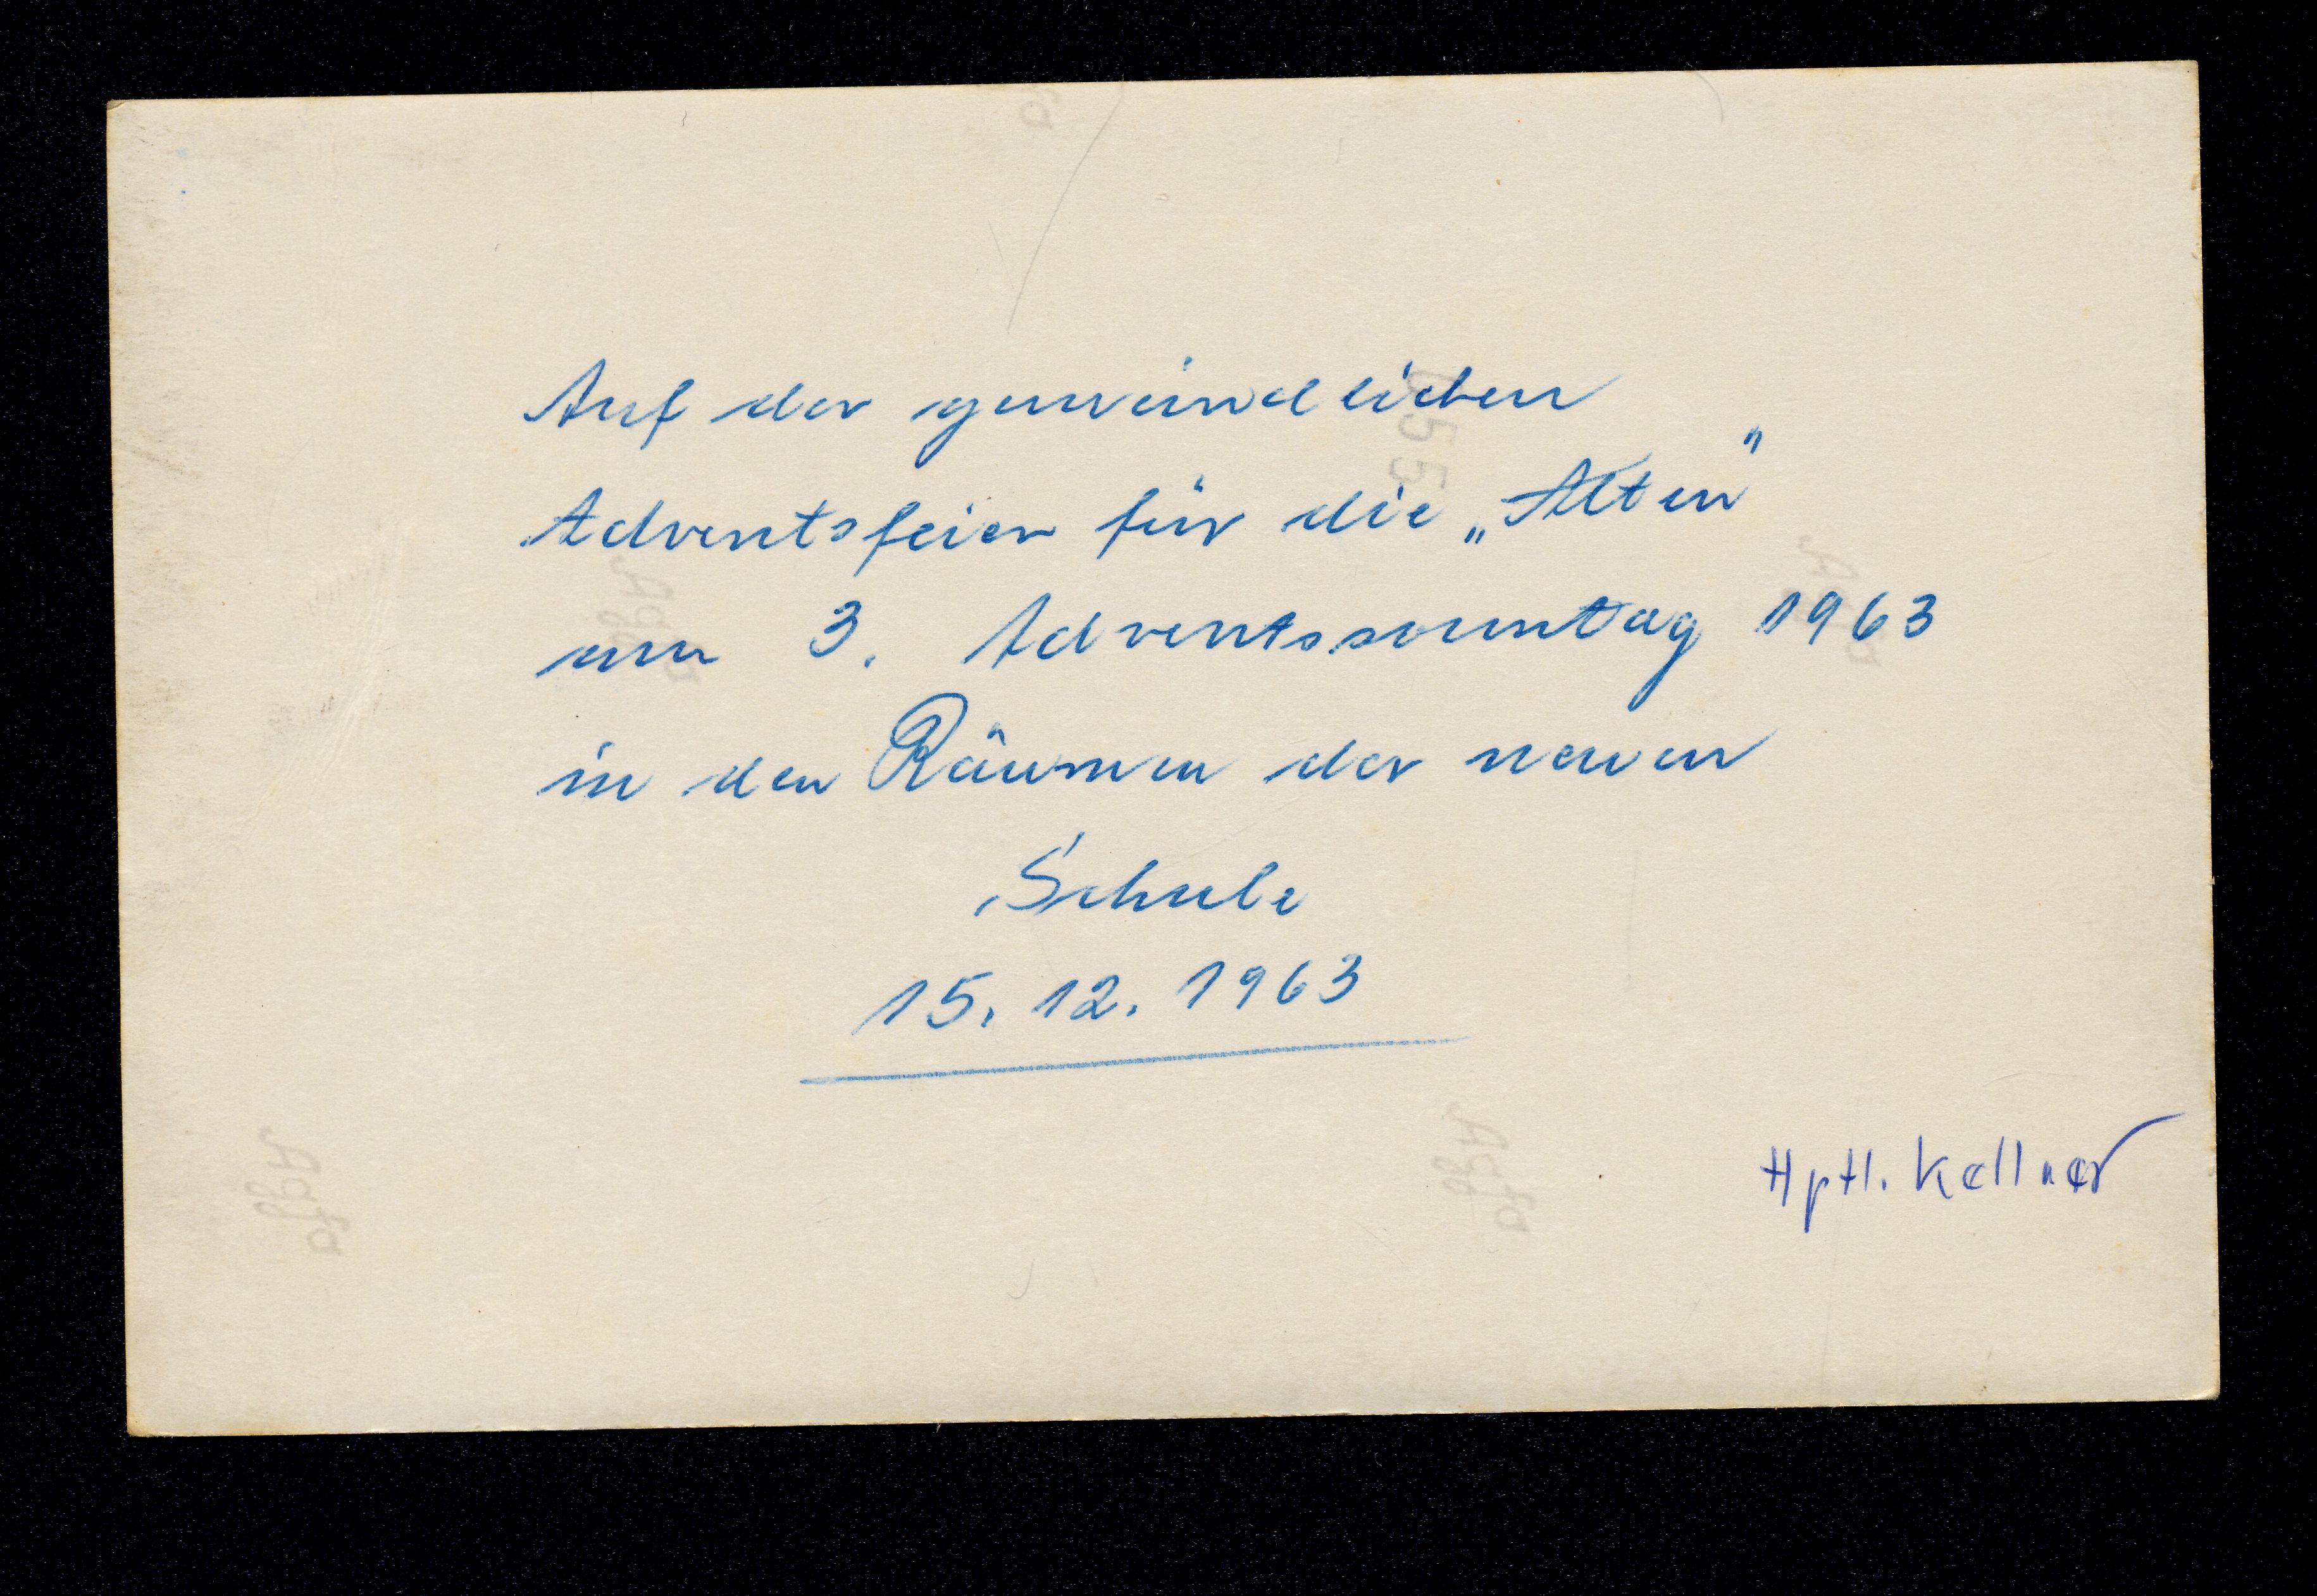 Auf der gemeindlichen
Adventsfeier für die „Alten"
am 3. Adventssonntag 1963
in den Räumen der neuen
Schule
15. 12. 1963
Hptl. Kellner
Agfa
Agfa
Agfa